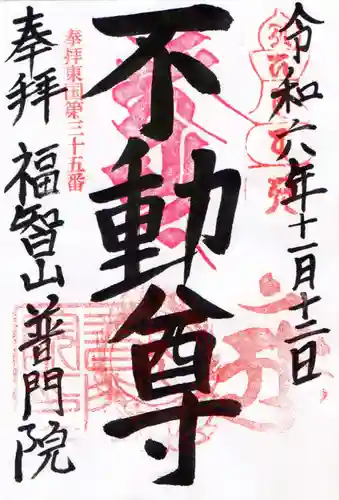 令和六年十一月十二日
不動尊
奉拝東国第三十五番
奉拝
福智山普門院